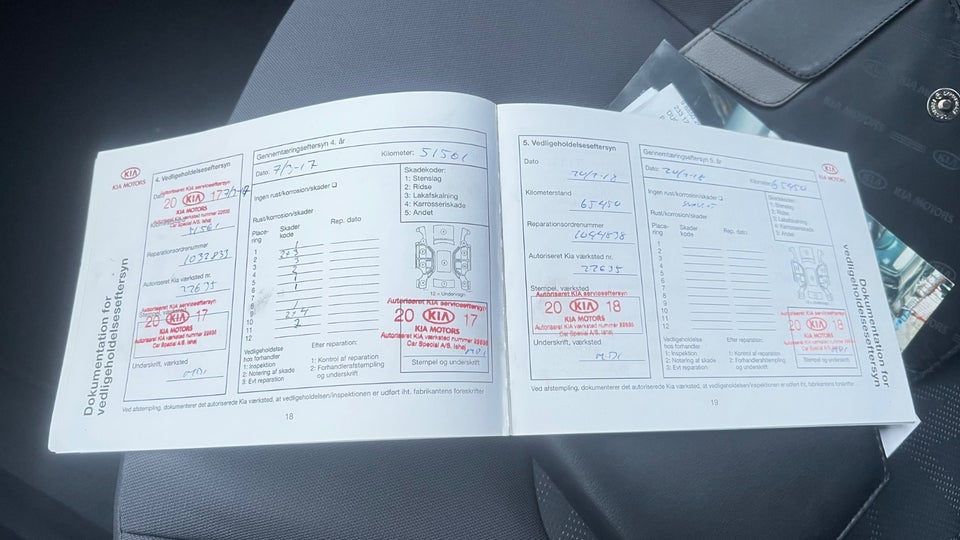 KIA
KIA MOTORS
4. Vedligeholdelseseftersyn
Autoriseret KIA serviceeftersyn
20 KIA 17
KIA MOTORS
Autoriseret KIA værksted nummer 22635
Car Special A/S, Ishøj
51561
Reparationsordrenummer
1032833
Autoriseret Kia værksted nr.
22635
Autoriseret KIA serviceeftersyn
20 KIA 17
KIA MOTORS
Autoriseret KIA værksted nummer 22635
Car Special A/S, Ishøj
Underskrift, værksted
MDI
Dokumentation for
vedligeholdelseseftersyn
Gennemtæringseftersyn 4. år
Dato: 7/3-17
Kilometer: 51561
Ingen rust/korrosion/skader
Rust/korrosion/skader
Place-
ring
Skader
kode
Rep. dato
1
2
3
4
5
6
7
8
9
10
11
12
Skadekoder:
1: Stenslag
2: Ridse
3: Lakafskalning
4: Karrosseriskade
5: Andet
12 = Undervogn
Autoriseret KIA serviceeftersyn
20 KIA 17
KIA MOTORS
Autoriseret KIA værksted nummer 22635
Car Special A/S, Ishøj
MDI
Stempel og underskrift
Vedligeholdelse
hos forhandler
1: Inspektion
2: Notering af skade
3: Evt reparation
Efter reparation:
1: Kontrol af reparation
2: Forhandlerafstempling
og underskrift
Ved afstempling, dokumenterer det autoriserede Kia værksted, at vedligeholdelsen/inspektionen er udført iht. fabrikantens forskrifter
18
5. Vedligeholdelseseftersyn
Dato
Kilometerstand
65450
Reparationsordrenummer
Autoriseret Kia værksted nr.
22635
Stempel, værksted
Autoriseret KIA serviceeftersyn
20 KIA 18
KIA MOTORS
Autoriseret KIA værksted nummer 22635
Car Special A/S, Ishøj
Underskrift, værksted
MDI
Gennemtæringseftersyn 5. år
Dato:
Kilometer: 65450
Ingen rust/korrosion/skader
Rust/korrosion/skader
Place-
ring
Skader
kode
Rep. dato
1
2
3
4
5
6
7
8
9
10
11
12
Skadekoder:
1: Stenslag
2: Ridse
3: Lakafskalning
4: Karrosseriskade
5: Andet
Autoriseret KIA serviceeftersyn
20 KIA 18
KIA MOTORS
Autoriseret KIA værksted nummer 22635
Car Special A/S, Ishøj
MDI
Stempel og underskrift
Vedligeholdelse
hos forhandler
1: Inspektion
2: Notering af skade
3: Evt reparation
Efter reparation:
1: Kontrol af reparation
2: Forhandlerafstempling
og underskrift
KIA
KIA MOTORS
Dokumentation for
vedligeholdelseseftersyn
Ved afstempling, dokumenterer det autoriserede Kia værksted, at vedligeholdelsen/inspektionen er udført iht. fabrikantens forskrifter
19
KIA MOTORS